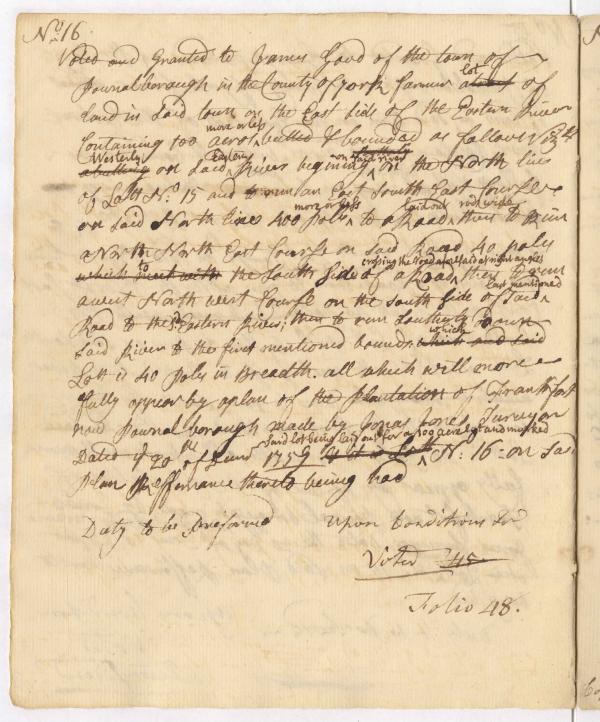 No. 16
Voted and Granted to James Good of the town of
Pownalborough in the County of york farmer a lot of
land in said town on the East side of the Eastern River
Containing 100 acres more or less butted & bounded as follows Vizt
abutting Westerly on said Eastern River begining on said river on the North line
of Lott No. 15 and to run an East South East Course
on said North line 400 poles more or less to a Road laid out rods wide then to Run
a North North East Course on said Road 40 poles
which meet with to the South Side of a Road crossing the road aforesaid at right angles then to run
a west North west Course on the south side of said last mentioned
Road to the sd Eastern River; then to run Southerly down
said River to the first mentioned bounds which and said
Lott is 40 poles in Breadth. all which will more
fully appear by a plan of the Plantation of Frankfort
now Pownalborough made by Jonas Jones Surveyor
Dated ye 20th of June 1759 said lot being laid out for a 100 acre lot and marked No. 16 on said
plan Refferrance thereto being had
Duty to be Preformed Upon Conditions &c
Voted 45
Folio 48.